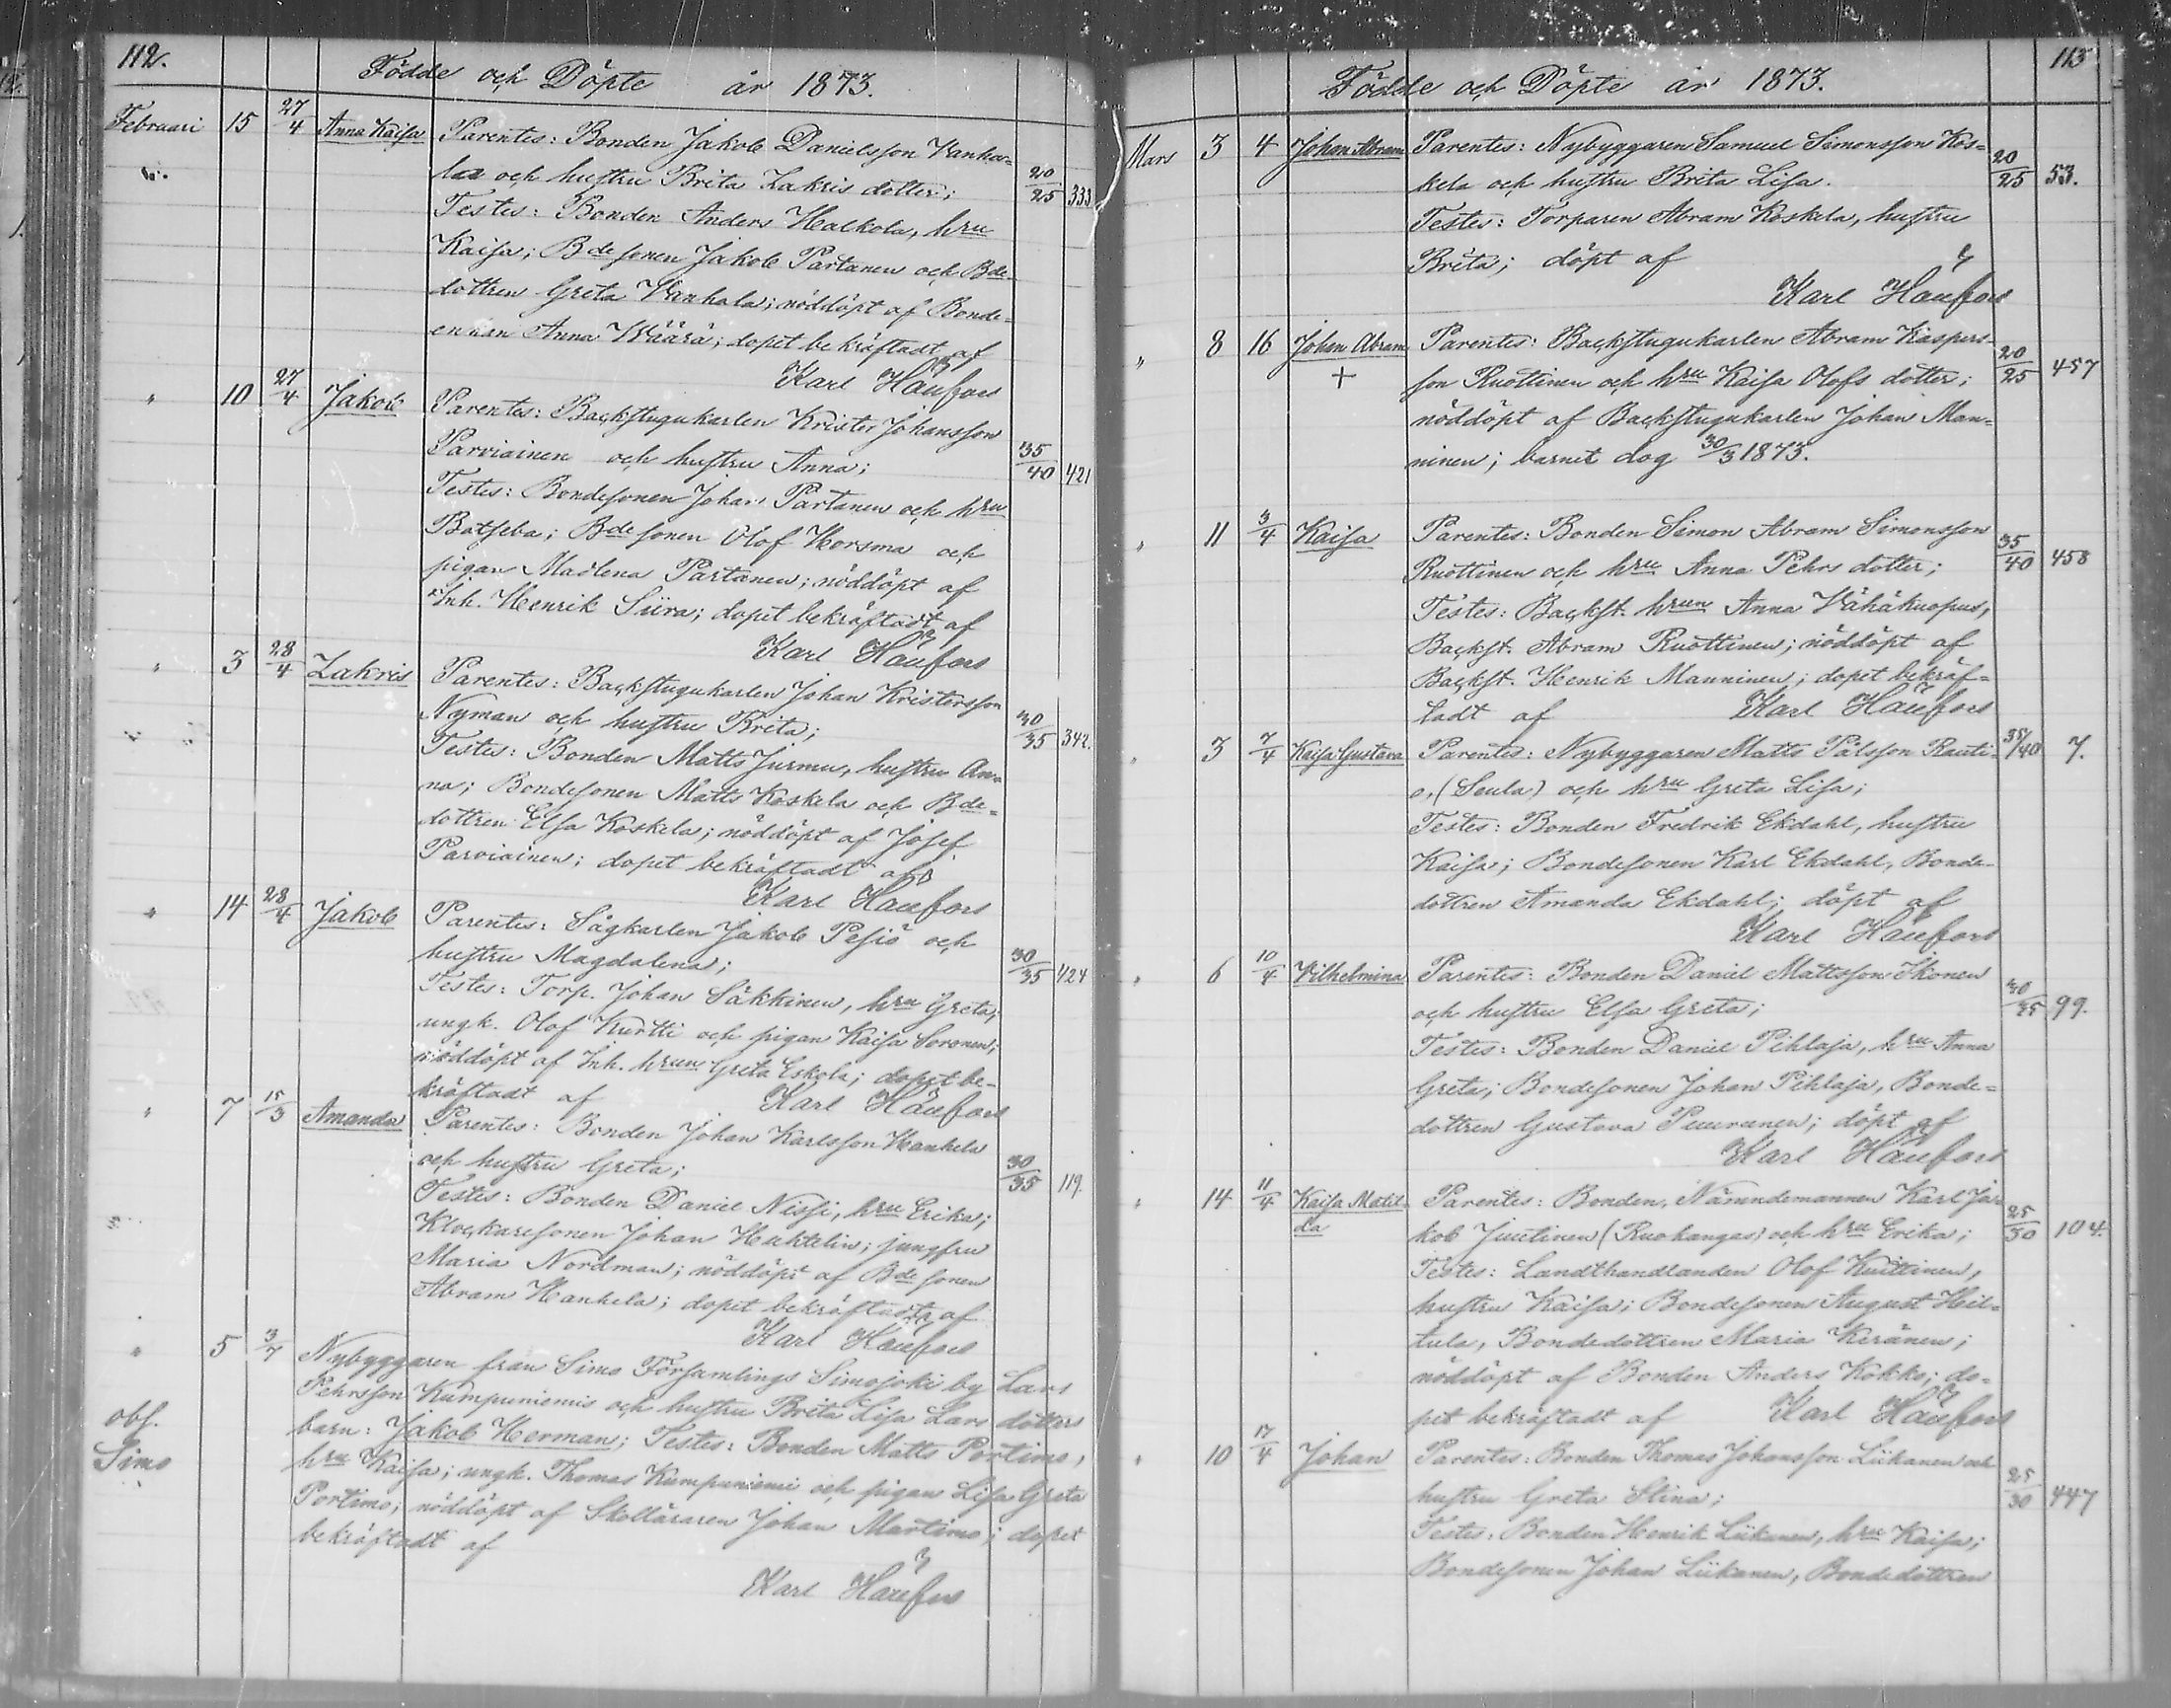 112.
Födde och Döpte år 1873.
Februari 15 27/4 Anna Kaisa Parentes: Bonden Jakob Danielsson Vanha-
laa och hustru Brita Zakris dotter; 20/25 333
Testes: Bonden Anders Halkola, hru
Kaisa; Bde sonen Jakob Partanen och Bde
dottren Greta Vanhala; nöddöpt af Bonde-
enkan Anna Wäärä; dopet bekräftadt af
Karl Häufors
" 10 27/4 Jakob Parentes: Backstugukarlen Krister Johansson
Parviainen och hustru Anna; 35/40 421
Testes: Bondesonen Johan Partanen och hru
Batseba; Bde sonen Olof Horsma och
pigan Madlena Partanen; nöddöpt af
Inh. Henrik Siira; dopet bekräftadt af
Karl Häufors
" 3 28/4 Zakris Parentes: Backstugukarlen Johan Kristersson
Nyman och hustru Brita; 30/35 342.
Testes: Bonden Matts Jurmu, hustru An-
na; Bondesonen Matts Koskela och Bde-
dottren Elsa Koskela; nöddöpt af Josef
Parviainen; dopet bekräftadt af
Karl Häufors
" 14 28/4 Jakob Parentes: Sågkarlen Jakob Pesiö och
hustru Magdalena; 30/35 424
Testes: Torp. Johan Säkkinen, hru Greta;
ungk. Olof Kurtti och pigan Kaisa Soronen;
nöddöpt af Inh. hrun Greta Eskola; dopet be-
kräftadt af Karl Häufors
" 7 15/3 Amanda Parentes: Bonden Johan Karlsson Hanhela
och hustru Greta; 30/35 119.
Testes: Bonden Daniel Nissi, hru Erika;
Klockaresonen Johan Huktelin; jungfru
Maria Nordman; nöddöpt af Bde sonen
Abram Hanhela; dopet bekräftadt af
Karl Häufors
" 5 3/7 Nybyggaren från Simo Församlings Simojoki by Lars
Pehrsson Kumpuniemis och hustru Brita Lisa Lars dotters
obs. barn: Jakob Herman; Testes: Bonden Matts Portimo,
Simo hru Kaisa; ungk. Thomas Kumpuniemi och pigan Lisa Greta
Portimo; nöddöpt af Skolläraren Johan Martimo; dopet
bekräftadt af
Karl Häufors
113
Födde och Döpte år 1873.
Mars 3 4 Johan Abram Parentes: Nybyggaren Samuel Simonsson Kos-
kela och hustru Brita Lisa. 20/25 53.
Testes: Torparen Abram Koskela, hustru
Brita; döpt af
Karl Häufors
" 8 16 Johan Abram Parentes: Backstugukarlen Abram Kaspers-
+ son Ruottinen och hru Kaisa Olofs dotter; 20/25 457
nöddöpt af Backstugukarlen Johan Man-
ninen; barnet dog 30/3 1873.
" 11 3/4 Kaisa Parentes: Bonden Simon Abram Simonsson
Ruottinen och hru Anna Pehrs dotter; 35/40 458
Testes: Backst. hrun Anna Vähäkuopus,
Backst. Abram Ruottinen; nöddöpt af
Backst. Henrik Manninen; dopet bekräf-
tadt af Karl Häufors
" 3 7/4 Kaisa Gustava Parentes: Nybyggaren Matts Pålsson Rauti- 35/40 7.
o, (Seula) och hru Greta Lisa;
Testes: Bonden Fredrik Ekdahl, hustru
Kaisa; Bondesonen Karl Ekdahl, Bonde-
dottren Amanda Ekdahl; döpt af
Karl Häufors
" 6 10/4 Vilhelmina Parentes: Bonden Daniel Mattsson Ikonen
och hustru Elsa Greta; 30/35 99.
Testes: Bonden Daniel Pihlaja, hru Anna
Greta; Bondesonen Johan Pihlaja, Bonde-
dottren Gustava Puuranen; döpt af
Karl Häufors
" 14 11/4 Kaisa Matil- Parentes: Bonden, Nämndemannen Karl Ja-
da kob Juutinen (Ruokangas) och hru Erika; 25/30 104.
Testes: Landthandlanden Olof Kuittinen,
hustru Kaisa; Bondesonen August Heil-
tula, Bondedottren Maria Keränen;
nöddöpt af Bonden Anders Kokko; do-
pet bekräftadt af Karl Häufors
" 10 17/4 Johan Parentes: Bonden Thomas Johansson Liikanen och
hustru Greta Stina; 25/30 447
Testes: Bonden Henrik Liikanen, hru Kaisa;
Bondesonen Johan Liikanen, Bondedottren